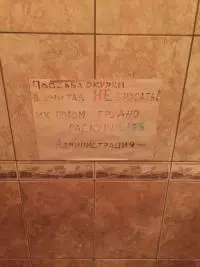 Просьба окурки
в унитаз НЕ бросать!
их потом трудно
раскуривать
Администрация